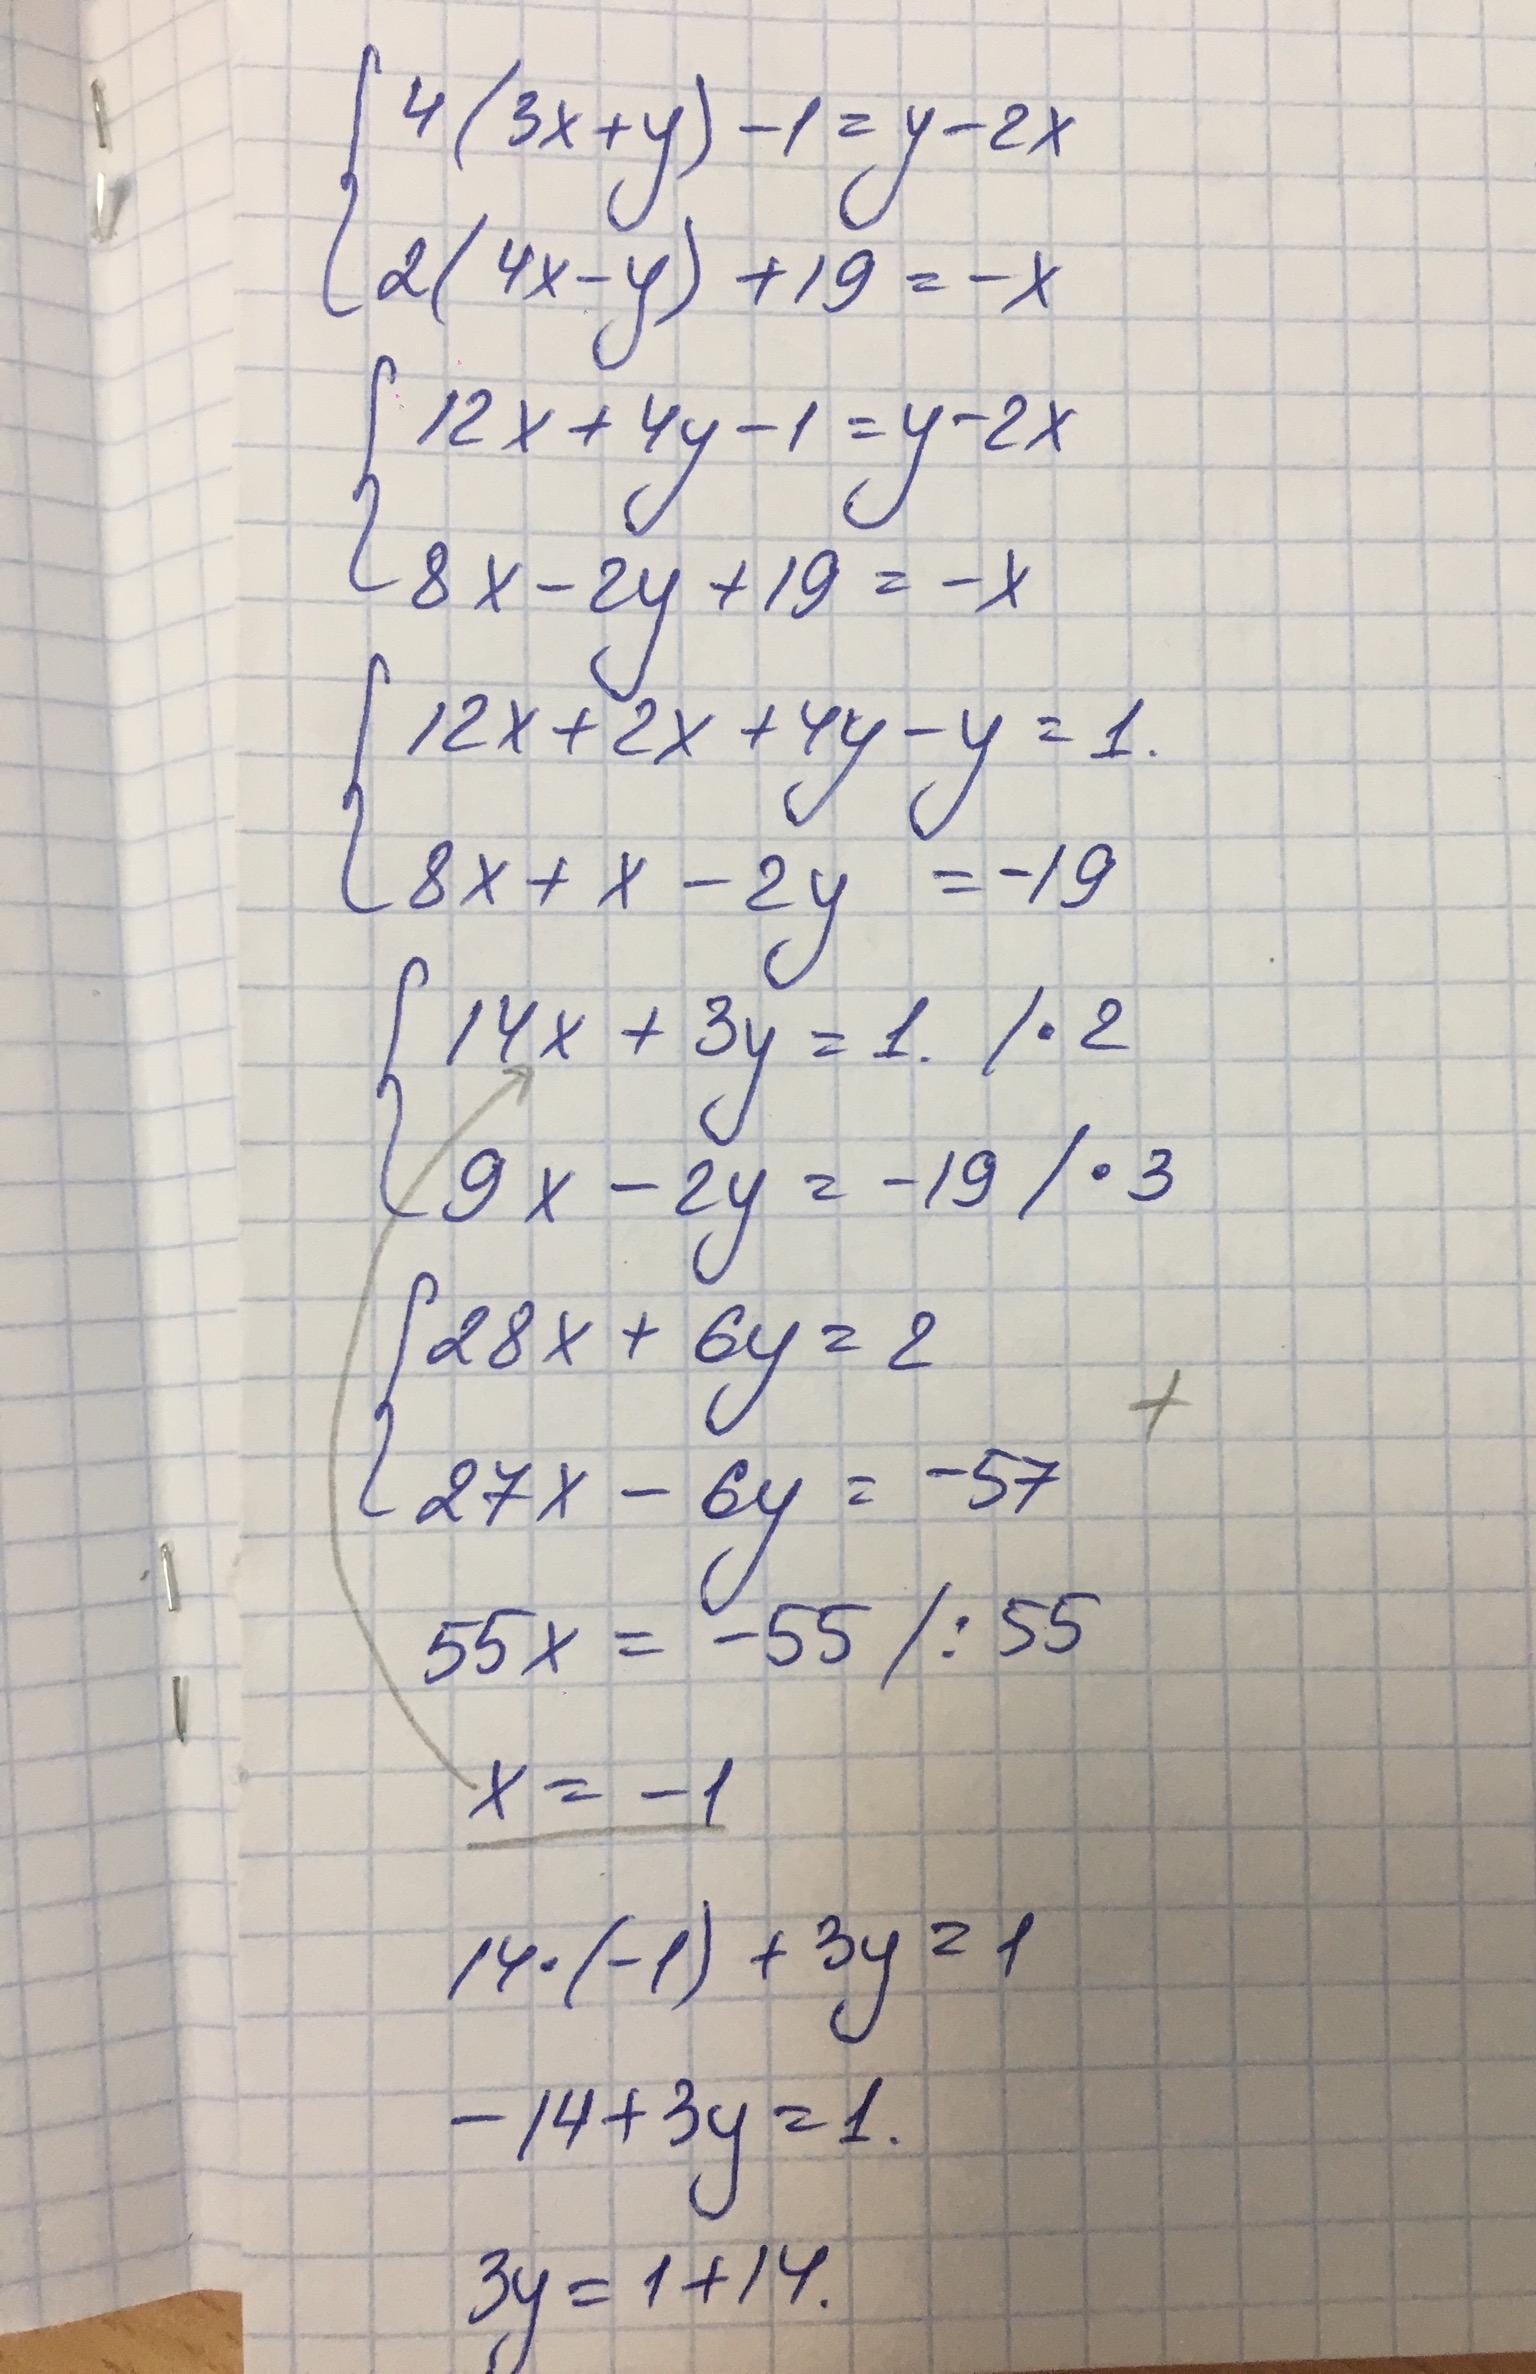 4(3x+y)-1=y-2x
2(4x-y)+19=-x
12x+4y-1=y-2x
8x-2y+19=-x
12x+2x+4y-y=1.
8x+x-2y=-19
14x+3y=1. /·2
9x-2y=-19 /·3
28x+6y=2
+
27x-6y=-57
55x=-55 /:55
x=-1
14·(-1)+3y=1
-14+3y=1.
3y=1+14.